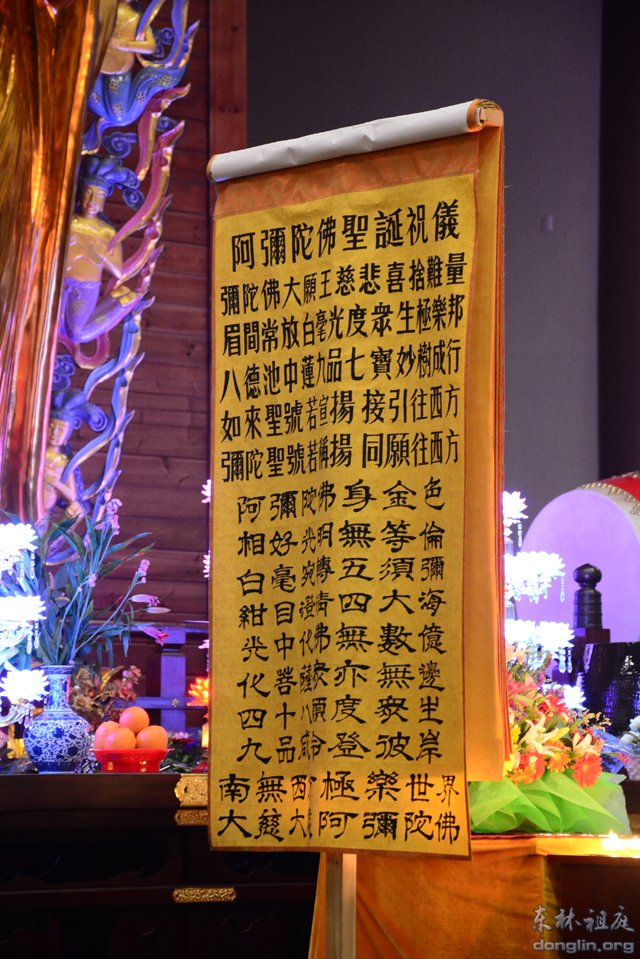 阿彌陀佛聖誕祝儀
彌陀佛大願王慈悲喜捨難量
眉間常放白毫光度眾生極樂邦
八德池中蓮九品七寶妙樹成行
如來聖號若宣揚接引往西方
彌陀聖號若稱揚同願往西方
阿彌陀佛身金色
相好光明無等倫
白毫宛轉五須彌
紺目澄清四大海
光中化佛無數億
化菩薩眾亦無邊
四十八願度眾生
九品咸令登彼岸
南無西極樂世界
大慈大阿彌陀佛
东林祖庭
donglin.org